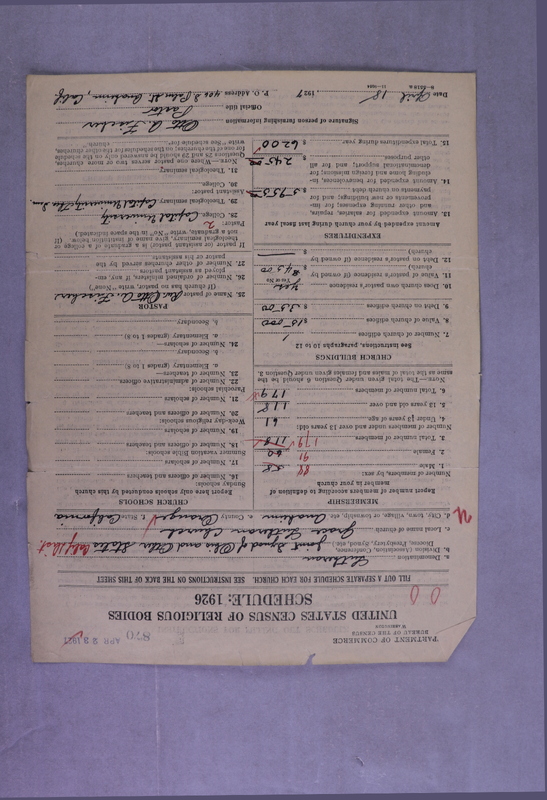 PARTMENT OF COMMERCE
BUREAU OF THE CENSUS
WASHINGTON
870 APR 23 1927
UNITED STATES CENSUS OF RELIGIOUS BODIES
SCHEDULE: 1926
FILL OUT A SEPARATE SCHEDULE FOR EACH CHURCH. SEE INSTRUCTIONS ON THE BACK OF THIS SHEET
a. Denomination Lutheran
b. Division (Association, Conference, Diocese, Presbytery, Synod, etc.) Joint Synod of Ohio and Other States
c. Local name of church Grace Lutheran Church
d. City, town, village, or township, etc. Anaheim e. County Orange f. State California
MEMBERSHIP
Report number of members according to definition of member in your church
Number of members, by sex:
1. Male 58
2. Female 60
3. Total number of members 118
Number of members under 13 and over 13 years old:
4. Under 13 years of age 61
5. 13 years old and over 118
6. Total number of members 179
NOTE.—The total given under Question 6 should be the same as the total of males and females given under Question 3.
CHURCH BUILDINGS
See instructions, paragraphs, 10 to 12
7. Number of church edifices 1
8. Value of church edifices $15000
9. Debt on church edifices $3500
10. Does church own pastor's residence yes
Yes or No
11. Value of pastor's residence (if owned by church) $4500
12. Debt on pastor's residence (if owned by church) $
EXPENDITURES
Amount expended by your church during last fiscal year
13. Amount expended for salaries, repairs, and other running expenses; for improvements or new buildings; and for payments on church debt $5955
14. Amount expended for benevolences, including home and foreign missions; for denominational support; and for all other purposes $245
15. Total expenditures during year $6200
CHURCH SCHOOLS
Report here only schools conducted by this church
Sunday schools:
16. Number of officers and teachers
17. Number of scholars
Summer vacation Bible schools:
18. Number of officers and teachers
19. Number of scholars
Week-day religious schools:
20. Number of officers and teachers
21. Number of scholars
Parochial schools:
22. Number of administrative officers
23. Number of teachers—
a. Elementary (grades 1 to 8)
b. Secondary
24. Number of scholars—
a. Elementary (grades 1 to 8)
b. Secondary
PASTOR
25. Name of pastor Rev. Otto A. Fischer
(If church has no pastor, write "None")
26. Number of ordained ministers, if any, employed as assistant pastors
27. Number of other churches served by the pastor or his assistants
If pastor or assistant pastor is a graduate of a college or theological seminary, give name of institution below. (If not a graduate, write "No" in the space indicated.)
Pastor: 2
28. College Capital University
29. Theological seminary Capital University Theo. Sem.
Assistant pastor:
30. College
31. Theological seminary
Signature of person furnishing information Otto A. Fischer
Official title Pastor
Date April 18, 1927 P. O. Address 406 S. Palm St. Anaheim, Calif.